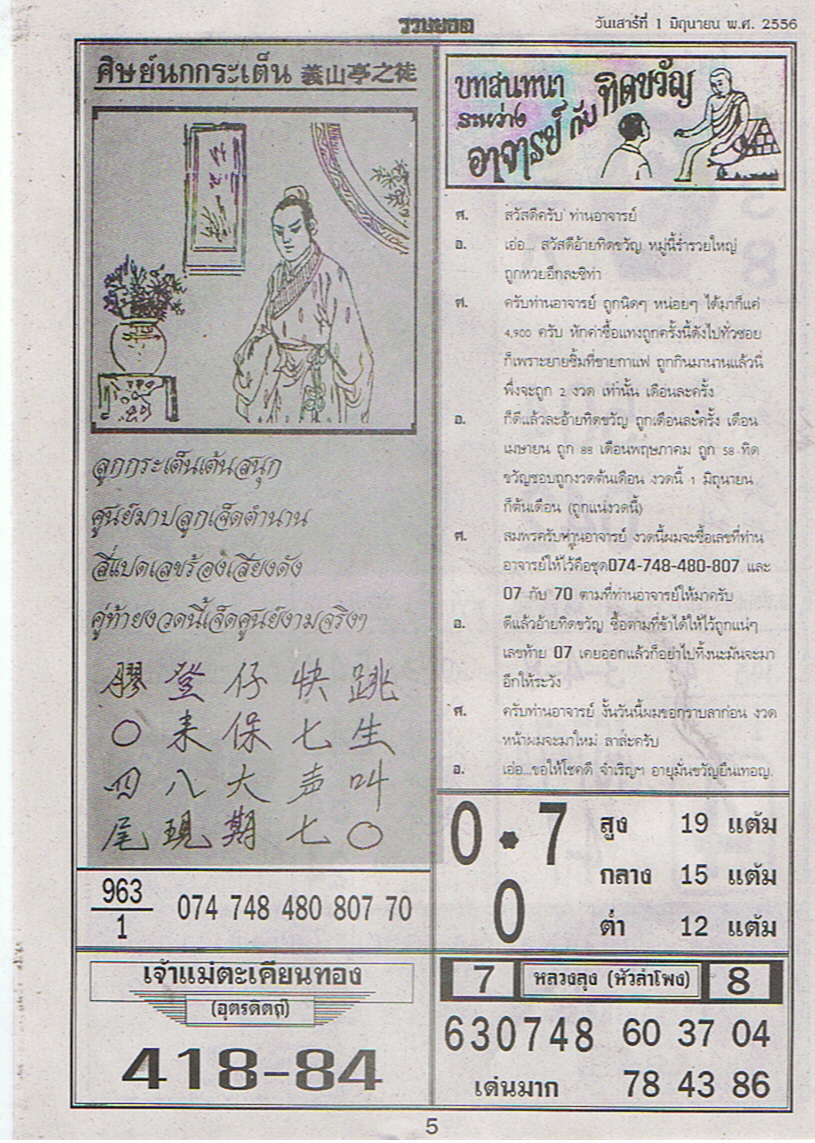 รวมยอด
วันเสาร์ที่ 1 มิถุนายน พ.ศ. 2556
ศิษย์นกกระเต็น 義山亭之徒
ลูกกระเด็นเต้นสนุก
ศูนย์มาปลูกเจ็ดตำนาน
สี่แปดเลขร้องเสียงดัง
คู่ท้ายงวดนี้เจ็ดศูนย์งามจริงๆ
膠 登 仔 快 跳
〇 来 保 七 生
四 八 大 声 叫
尾 現 期 七 〇
963
1
074 748 480 807 70
บทสนทนา
ระหว่าง
อาจารย์ กับ ทิดขวัญ
ศ. สวัสดีครับ ท่านอาจารย์
อ. เอ่อ... สวัสดีอ้ายทิดขวัญ หมู่นี้ร่ำรวยใหญ่
ถูกหวยอีกละซิท่า
ศ. ครับท่านอาจารย์ ถูกนิดๆ หน่อยๆ ได้มาก็แค่
4,900 ครับ หักค่าซื้อแทงถูกครั้งนี้ดังไปทั่วซอย
ก็เพราะยายชิ้มที่ขายกาแฟ ถูกกินมานานแล้วนี่
พึ่งจะถูก 2 งวด เท่านั้น เดือนละครั้ง
อ. ก็ดีแล้วละอ้ายทิดขวัญ ถูกเดือนละครั้ง เดือน
เมษายน ถูก 88 เดือนพฤษภาคม ถูก 58 ทิด
ขวัญชอบถูกงวดต้นเดือน งวดนี้ 1 มิถุนายน
ก็ต้นเดือน (ถูกแน่งวดนี้)
ศ. สมพรครับท่านอาจารย์ งวดนี้ผมจะซื้อเลขที่ท่าน
อาจารย์ให้ไว้คือชุด074-748-480-807 และ
07 กับ 70 ตามที่ท่านอาจารย์ให้มาครับ
อ. ดีแล้วอ้ายทิดขวัญ ซื้อตามที่ข้าได้ให้ไว้ถูกแน่ๆ
เลขท้าย 07 เคยออกแล้วก็อย่าไปทิ้งนะมันจะมา
อีกให้ระวัง
ศ. ครับท่านอาจารย์ งั้นวันนี้ผมขอกราบลาก่อน งวด
หน้าผมจะมาใหม่ ลาล่ะครับ
อ. เอ่อ...ขอให้โชคดี จำเริญฯ อายุมั่นขวัญยืนเทอญ.
0 * 7
0
สูง 19 แต้ม
กลาง 15 แต้ม
ต่ำ 12 แต้ม
เจ้าแม่ตะเคียนทอง
(อุตรดิตถ์)
418-84
7 หลวงลุง (หัวลำโพง) 8
630748 60 37 04
เด่นมาก 78 43 86
5